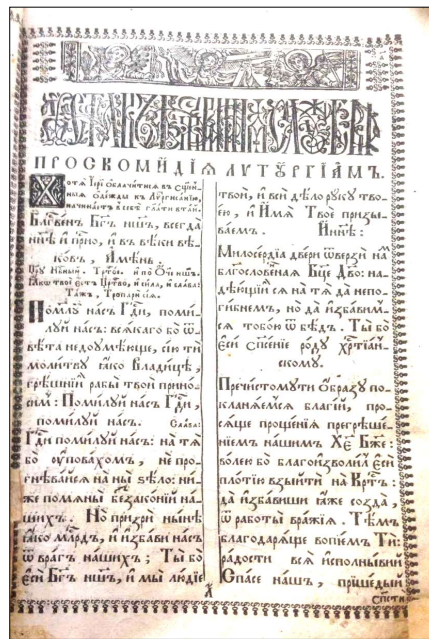 ПРОСКОМИ́ДІѦ ЛѴТꙊРГІА́МЪ.
Хотѧ̀ Іере́й ѡ҆блачи́тисѧ въ сщ҃е́н_
ныѧ ѻ҆де́жды къ Лꙋргиса́нїю,
начина́етъ въ себѣ̀ гл҃ати вта́й.
Блг҃ве́нъ Бг҃ъ нш҃ъ, всегда̀
нн҃ѣ и҆ при́сно, и҆ въ вѣ́ки вѣ_
ко́въ, А҆ми́нь
Цр҃ю̀ Нб҃ный. Трт҃ое. и҆ по Ѻ҆́ч҃е нш҃ъ.
Ꙗ҆́кѡ твоѐ є҆́стъ Цр҃тво, и҆ си́ла, и҆ сла́ва:
Та́жъ, Тропарѝ сїѧ̀.
Поми́лꙋй на́съ Гд҃и, поми_
лꙋ́й на́съ: всѧ́кагѡ бо ѿ_
вѣ́та недоꙋмѣ́юще, сїю̀ тѝ
моли́твꙋ ꙗ҆́кѡ Влады́цѣ,
грѣ́шнїи рабы̀ твоѝ прино́_
симъ: Поми́лꙋй на́съ Гд҃и,
поми́лꙋй на́съ. Сла́ва:
Гд҃и поми́лꙋй на́съ: на тѧ̀
бо ᲂу҆пова́хомъ, не про_
гнѣ́вайсѧ на ны̀ ѕѣлѡ̀: ни_
же помѧнѝ беззако́нїй на́_
шихъ. Но при́зри ны́нѣ
ꙗ҆́кѡ млр҃дъ, и҆ и҆зба́ви на́съ
ѿ вра́гъ на́шихъ; Ты́ бо
є҆сѝ Бг҃ъ нш҃ъ, и҆ мы̀ лю́дїе
твоѝ, и҆ всѝ дѣ́ло рꙋкꙋ̀ тво_
є́ю, и҆ И҆́мѧ Твоѐ призыва́_
ваемъ. И҆ нн҃ѣ:
Милосе́рдїѧ две́ри ѿве́рзи на́мъ
благослове́ннаѧ Бц҃е Дв҃о: на_
дѣ́ющїисѧ на тѧ̀ да не по_
ги́бнемъ, но да и҆зба́вимсѧ
сѧ тобо́ю ѿ бѣ́дъ. Ты́ бо
є҆сѝ Сп҃се́нїе ро́дꙋ хрт҃їа́н_
скомꙋ.
Пречи́стомꙋти ѻ҆́бразꙋ по_
клонѧ́емсѧ благі́й, про_
сѧ́ще проще́нїѧ прегрѣше́_
нїемъ на́шимъ Хе҃ Бж҃е:
во́лею бо благои҆зво́лилъ є҆сѝ
пло́тїю взы́ити на Крт҃ъ:
да и҆зба́виши ꙗ҆́же созда̀,
ѿ рабо́ты вра́жїѧ. Тѣ́мъ
благода́рѧще вопїе́мъ Тѝ:
ра́дости всѧ̀ и҆спо́лнивый
Сп҃се на́шъ, прише́дый
Сп҃стѝ